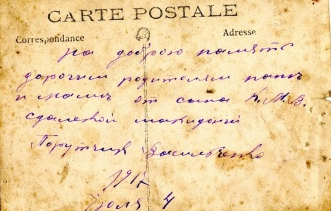 CARTE POSTALE
Correspondance Adresse
На добрую память
дорогим родителям папе
и маме от сына К. М. В.
с далекой
Поручик Васильченко
191
Июля 4